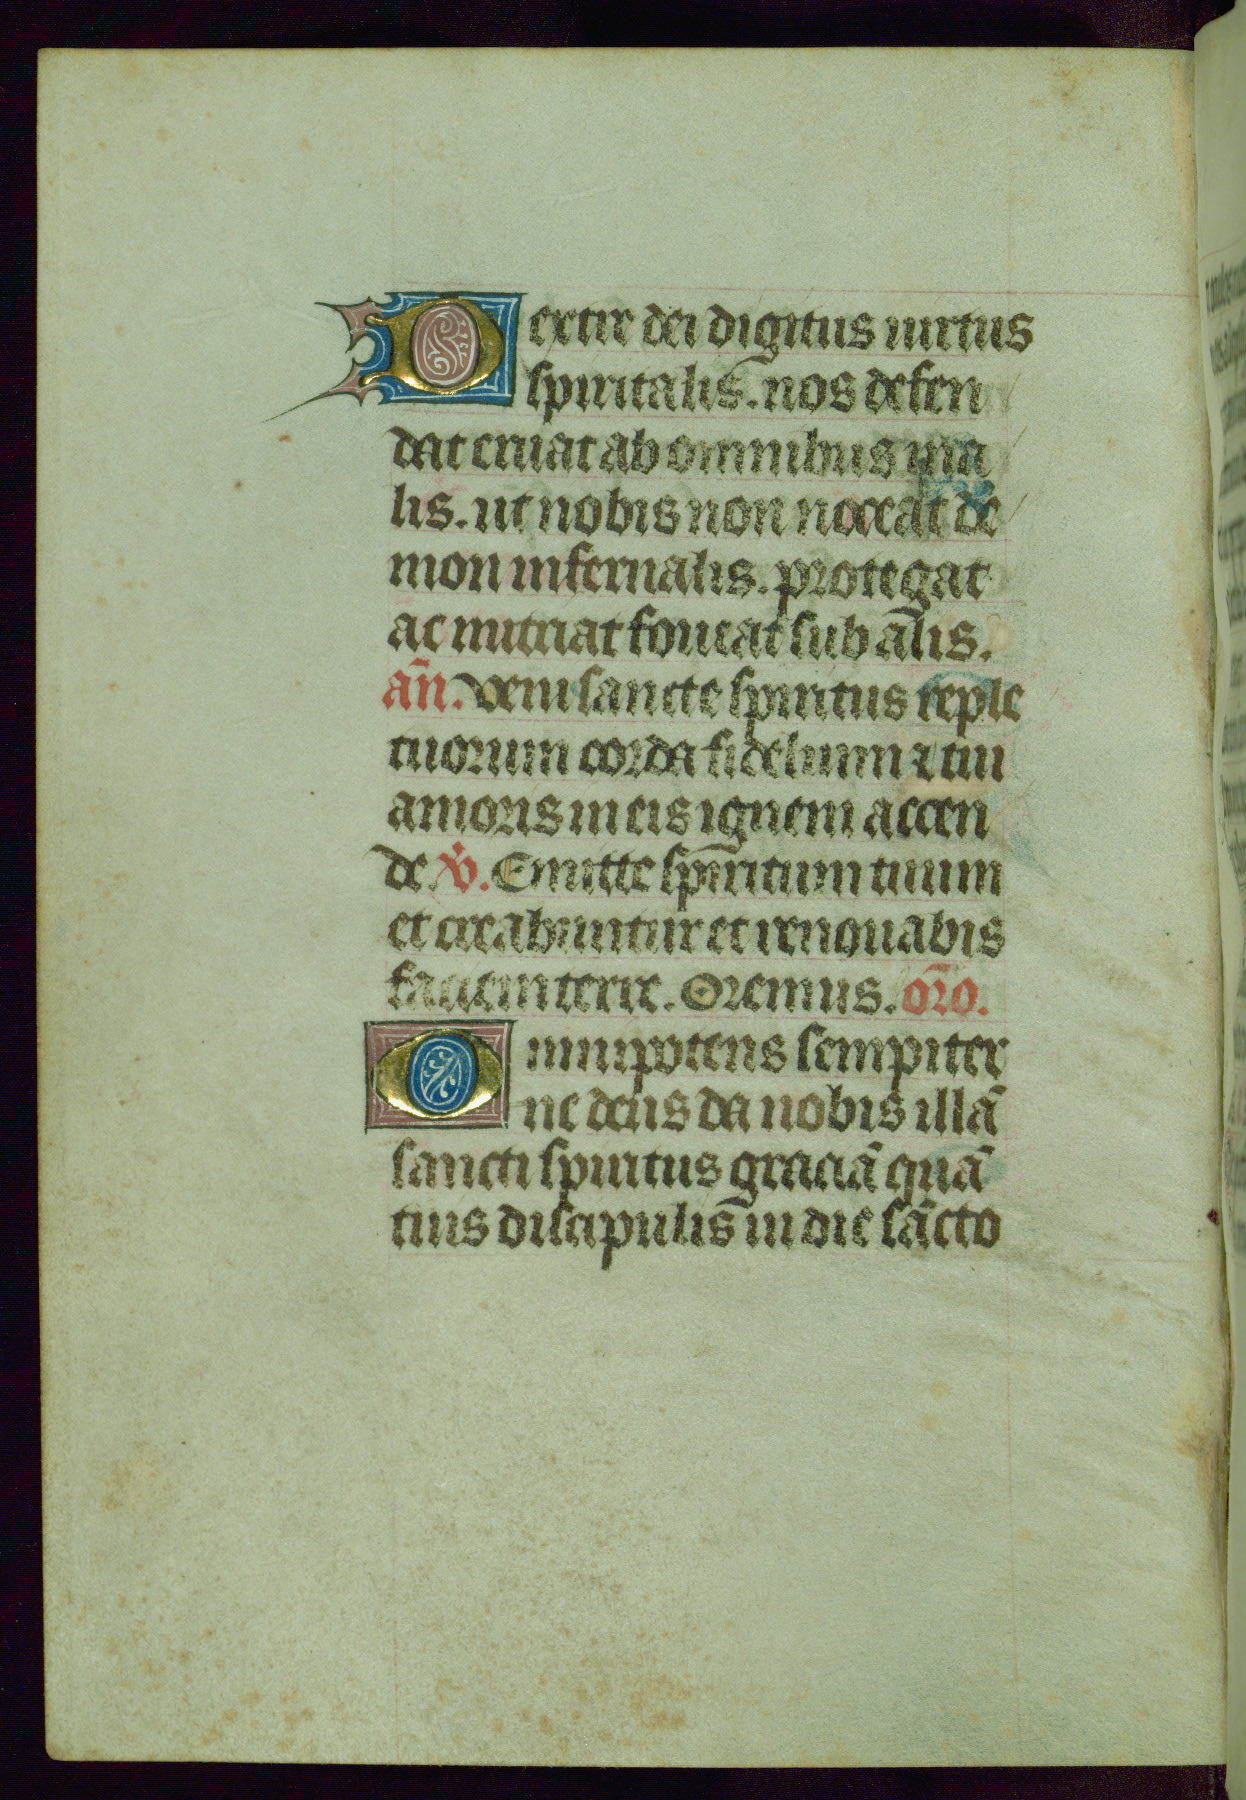 Dextre dei digitus uirtus
spiritalis. nos defen
dat eruat ab omnibus ma
lis. ut nobis non noceat de
mon infernalis. protegat
ac nutriat foueat sub al̄is.
an̄. Veni sancte spiritus reple
tuorum corda fidelium ⁊ tui
amoris in eis ignem accen
de. v̇. Emitte spīritum tuum
et creabuntur et renouabis
faciem terre. Oremus. or̄o.
Omnipotens sempiter
ne deus da nobis illā
sancti spiritus graciā quā
tuis discipulis in die sācto